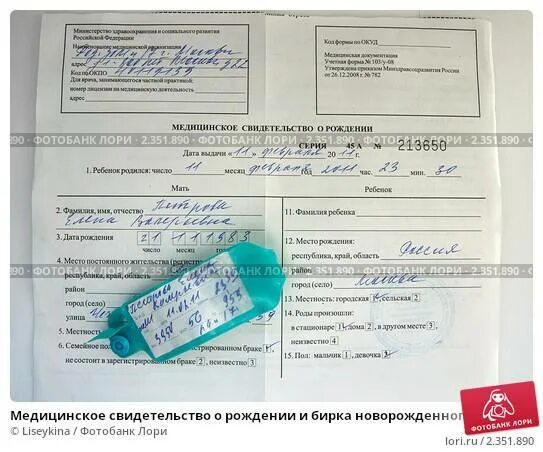 Министерство здравоохранения и социального развития
Российской Федерации
Наименование медицинской организации
г. Москвы
адрес
Код по ОКПО
Для врача, занимающегося частной практикой:
номер лицензии на медицинскую деятельность
адрес
Код формы по ОКУД
Медицинская документация
Учетная форма № 103/у-08
Утверждена приказом Минздравсоцразвития России
от 26.12.2008 г. № 782
МЕДИЦИНСКОЕ СВИДЕТЕЛЬСТВО О РОЖДЕНИИ
СЕРИЯ 45 А № 213650
Дата выдачи «11» февраля 2011 г.
1. Ребенок родился: число 11 месяц февраль год 2011 час 23 мин. 30
Мать
Ребенок
2. Фамилия, имя, отчество Петрова
Елена Валерьевна
3. Дата рождения 21 11 1983
число месяц год
4. Место постоянного жительства (регистрации)
республика, край, область
район
город (село)
улица
5. Местность
6. Семейное положение
зарегистрированном браке
не состоит в зарегистрированном браке 2, неизвестно 3
11. Фамилия ребенка
12. Место рождения:
республика, край, область Россия
район
город (село) Москва
13. Местность: городская сельская 2
14. Роды произошли:
в стационаре дома 2, в другом месте 3,
неизвестно 4
15. Пол: мальчик 1, девочка 2
11.02.11
3350 50
ФОТОБАНК ЛОРИ - 2.351.890
Медицинское свидетельство о рождении и бирка новорожденног
© Liseykina / Фотобанк Лори
ФОТОБАНК ЛОРИ
lori.ru / 2.351.890